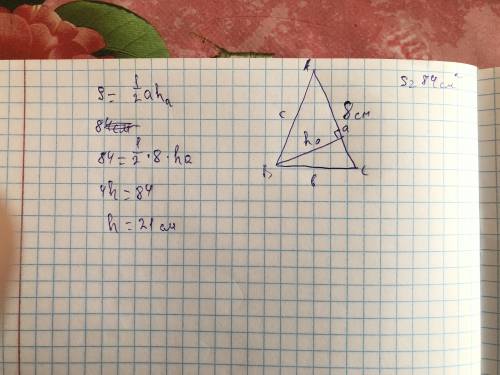 S = 1/2 ah_a
84 = 1/2 · 8 · ha
4h = 84
h = 21 см
A
c
8 см
a
ha
B
b
C
S = 84 см²